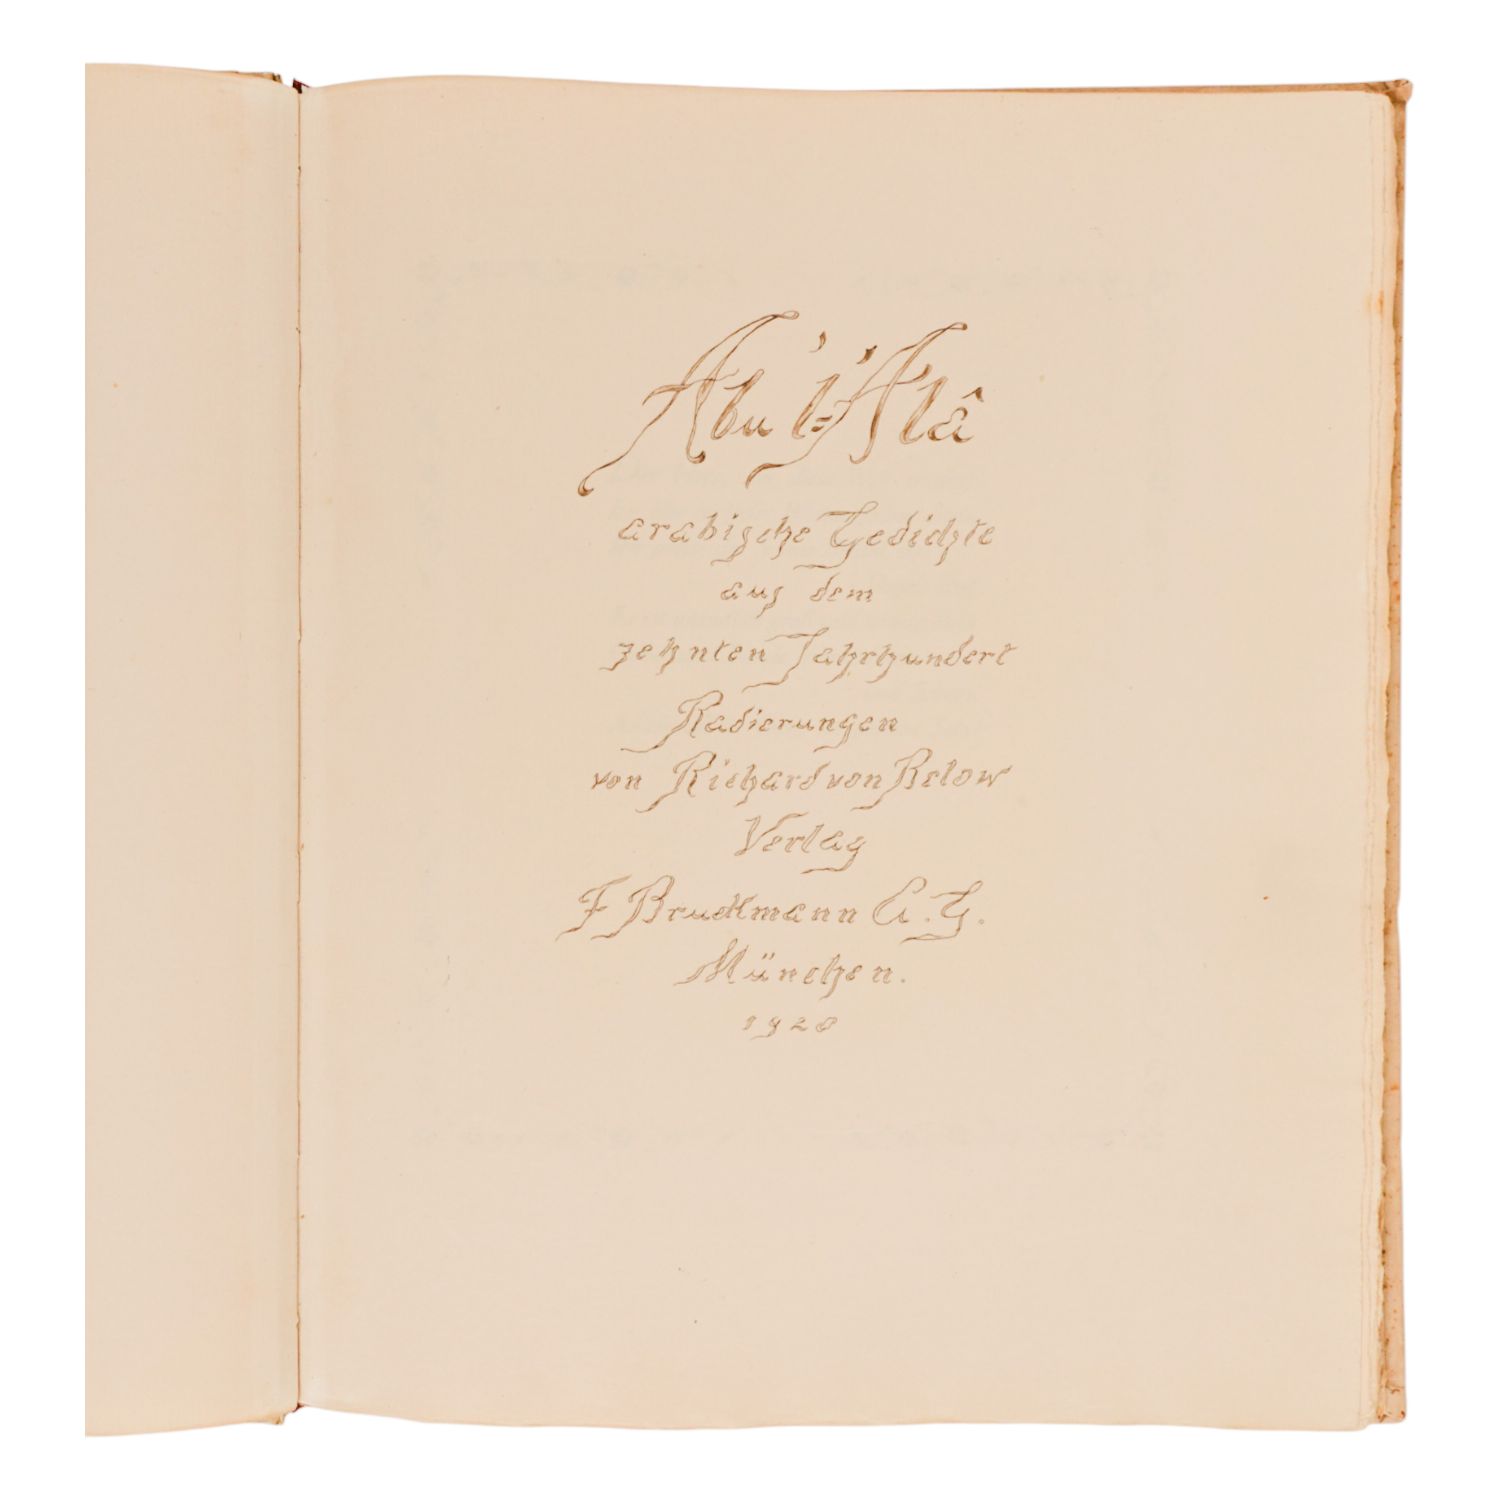 Abu 'l='Alâ
arabische Gedichte
aus dem
zehnten Jahrhundert
Radierungen
von Richard von Below
Verlag
F Bruckmann A.G.
München.
1920